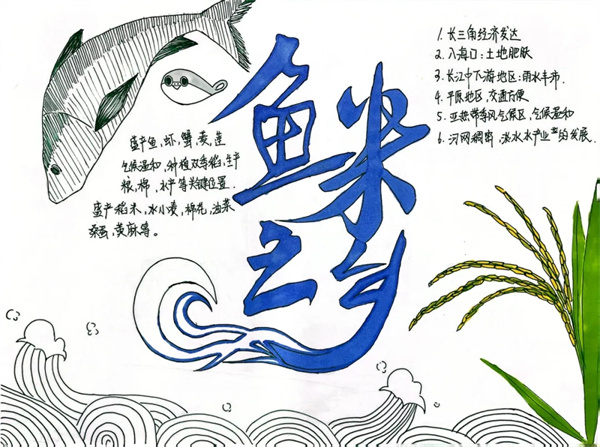 鱼米之乡
盛产鱼,虾,蟹,菱,莲
气候温和,种植双季稻,生产
粮,棉,水产等关键位置.
盛产稻米,水小麦,棉花,油菜
桑蚕,黄麻等。
1. 长三角经济发达
2. 入海口:土地肥沃
3. 长江中下游地区:雨水丰沛.
4. 平原地区,交通方便
5. 亚热带季风气候区,气候温和
6. 河网稠密,淡水水产业的发展.